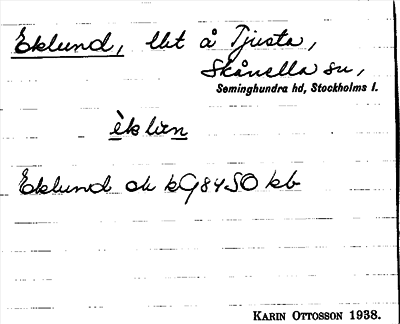 Eklund, lht å Tjusta,
Skånella sn,
Seminghundra hd, Stockholms l.
Eklund ek kG84SO kb
KARIN OTTOSSON 1938.